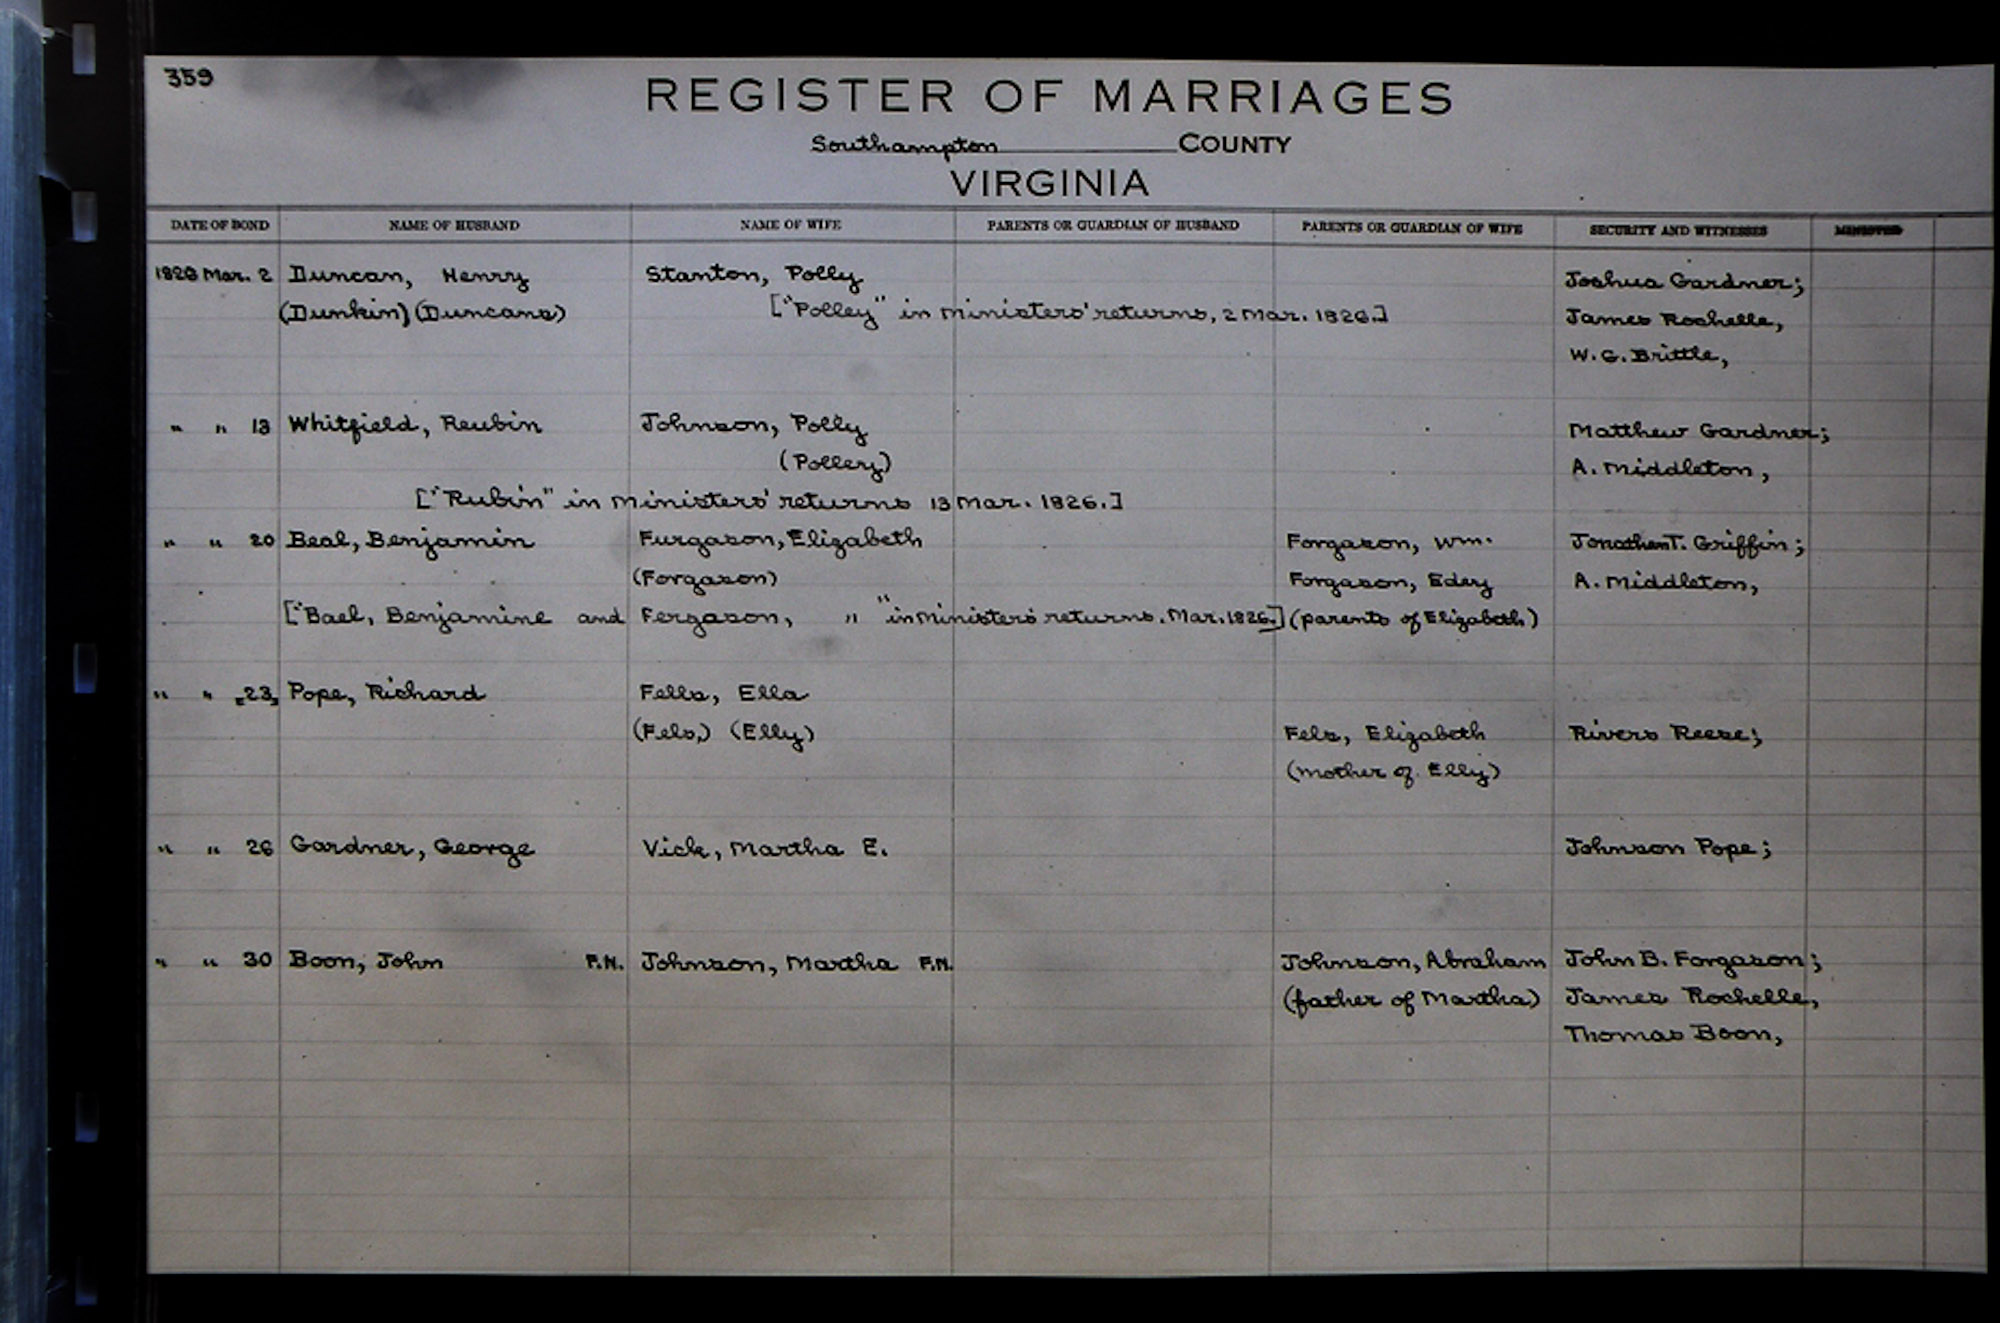 359
REGISTER OF MARRIAGES
Southampton COUNTY
VIRGINIA
DATE OF BOND NAME OF HUSBAND NAME OF WIFE PARENTS OR GUARDIAN OF HUSBAND PARENTS OR GUARDIAN OF WIFE SECURITY AND WITNESSES MINISTER
1826 Mar. 2 Duncan, Henry Stanton, Polly Joshua Gardner;
(Dunkin) (Duncans) ["Polley" in Ministers' returns, 2 Mar. 1826.] James Rochelle,
W. G. Brittle,
" " 13 Whitfield, Reubin Johnson, Polly Matthew Gardner;
(Polley) A. Middleton,
["Rubin" in Ministers' returns 13 Mar. 1826.]
" " 20 Beal, Benjamin Furgason, Elizabeth Forgason, Wm. Jonathan T. Griffin;
(Forgason) Forgason, Edey A. Middleton,
["Bael, Benjamine and Fergason, " " in Ministers' returns. Mar. 1826.] (parents of Elizabeth)
" " 23, Pope, Richard Fells, Ella
(Fels,) (Elly) Fels, Elizabeth Rivers Reese;
(mother of Elly)
" " 26 Gardner, George Vick, Martha E. Johnson Pope;
" " 30 Boon, John F.N. Johnson, Martha F.N. Johnson, Abraham John B. Forgason;
(father of Martha) James Rochelle,
Thomas Boon,